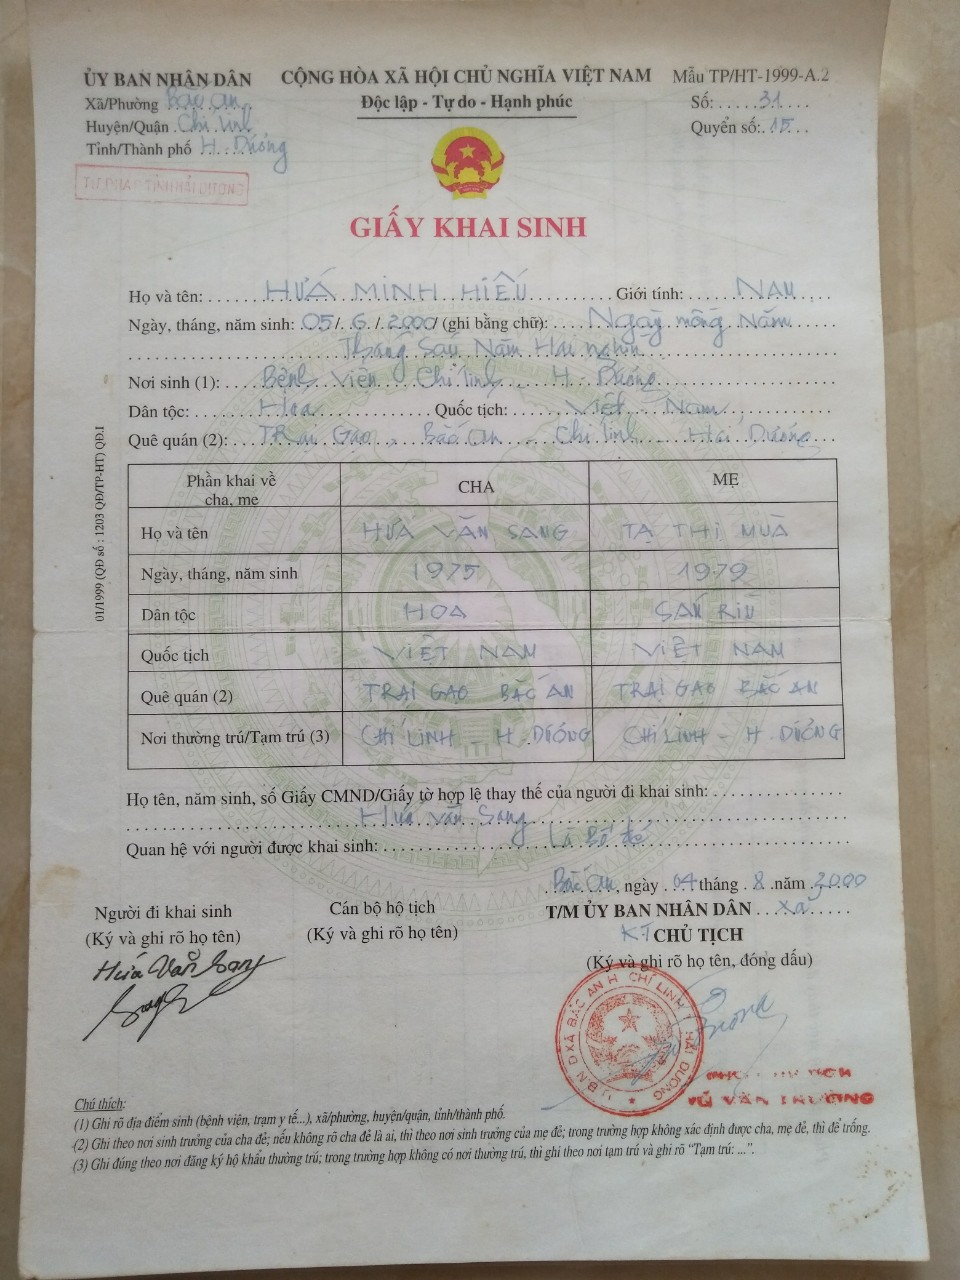 ỦY BAN NHÂN DÂN
CỘNG HÒA XÃ HỘI CHỦ NGHĨA VIỆT NAM
Mẫu TP/HT-1999-A.2
Xã/Phường Bắc An
Độc lập - Tự do - Hạnh phúc
Số: 31
Huyện/Quận Chí Linh
Quyển số: 15
Tỉnh/Thành phố H. Dương
GIẤY KHAI SINH
Họ và tên: HỨA MINH HIẾU Giới tính: NAM
Ngày, tháng, năm sinh: 05/6/2000 (ghi bằng chữ): Ngày mồng Năm
Tháng Sáu Năm Hai nghìn
Nơi sinh (1): Bệnh Viện Chí linh H. Dương
Dân tộc: Hoa Quốc tịch: Việt Nam
Quê quán (2): TRại Gạo Bắc An Chí linh Hải Dương
Phần khai về cha, mẹ
CHA
MẸ
Họ và tên HỨA VĂN SANG TẠ THỊ MÙA
Ngày, tháng, năm sinh 1975 1979
Dân tộc HOA SÁN RÌU
Quốc tịch VIỆT NAM VIỆT NAM
Quê quán (2) TRẠI GẠO BẮC AN TRẠI GẠO BẮC AN
Nơi thường trú/Tạm trú (3) CHÍ LINH H. DƯƠNG CHÍ LINH - H. DƯƠNG
01/1999 (QĐ số : 1203 QĐ/TP-HT) QĐ.I
Họ tên, năm sinh, số Giấy CMND/Giấy tờ hợp lệ thay thế của người đi khai sinh:
Hứa Văn Sang
Quan hệ với người được khai sinh: Là Bố đẻ
Bắc An, ngày 04 tháng 8 năm 2000
Người đi khai sinh
Cán bộ hộ tịch
T/M ỦY BAN NHÂN DÂN Xã
(Ký và ghi rõ họ tên)
(Ký và ghi rõ họ tên)
KT CHỦ TỊCH
(Ký và ghi rõ họ tên, đóng dấu)
Hứa Văn Sang
U.B.N.D XÃ BẮC AN H. CHÍ LINH T. HẢI DƯƠNG
VŨ VĂN TRƯỜNG
Chú thích:
(1) Ghi rõ địa điểm sinh (bệnh viện, trạm y tế...), xã/phường, huyện/quận, tỉnh/thành phố.
(2) Ghi theo nơi sinh trưởng của cha đẻ; nếu không rõ cha đẻ là ai, thì theo nơi sinh trưởng của mẹ đẻ; trong trường hợp không xác định được cha, mẹ đẻ, thì để trống.
(3) Ghi đúng theo nơi đăng ký hộ khẩu thường trú; trong trường hợp không có nơi thường trú, thì ghi theo nơi tạm trú và ghi rõ "Tạm trú: ...".